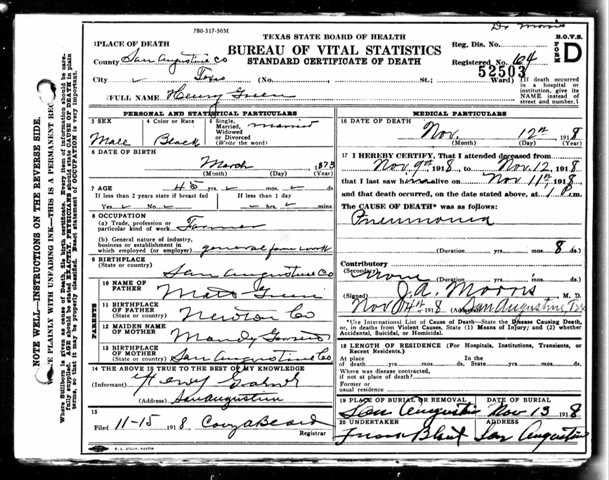 Dr Morris
780-317-50M
TEXAS STATE BOARD OF HEALTH
B.O.V.S.
FORM
D
1 PLACE OF DEATH
BUREAU OF VITAL STATISTICS
Reg. Dis. No.
County San Augustine Co
STANDARD CERTIFICATE OF DEATH
Registered No. 64
52503
City Texas (No. St.; Ward)
(If death occurred in a hospital or institution, give its NAME instead of street and number.)
2 FULL NAME Henry Green
PERSONAL AND STATISTICAL PARTICULARS
3 SEX
Male
4 Color or Race
Black
5 Single, Married, Widowed or Divorced (Write the word)
married
6 DATE OF BIRTH
March 1873
(Month) (Day) (Year)
7 AGE
45 yrs. mos. ds.
If less than 2 years state if breast fed
Yes No
If less than 1 day
hrs. min.
8 OCCUPATION
(a) Trade, profession or particular kind of work Farmer
(b) General nature of industry, business or establishment in which employed (or employer) general farm work
9 BIRTHPLACE
(State or country) San Augustine Co
PARENTS
10 NAME OF FATHER Green
11 BIRTHPLACE OF FATHER
(State or country) Newton Co
12 MAIDEN NAME OF MOTHER Mandy
13 BIRTHPLACE OF MOTHER
(State or country) San Augustine Co
14 THE ABOVE IS TRUE TO THE BEST OF MY KNOWLEDGE
(Informant) Henry
(Address) San Augustine
15
Filed 11-15 1918
Registrar
MEDICAL PARTICULARS
16 DATE OF DEATH
Nov. 12th 1918
(Month) (Day) (Year)
17 I HEREBY CERTIFY, That I attended deceased from
Nov. 9th 1918, to Nov. 12, 1918
that I last saw h alive on Nov 11th 1918
and that death occurred, on the date stated above, at 1 m.
The CAUSE OF DEATH* was as follows:
Pneumonia
(Duration yrs. mos. 8 ds.
Contributory
(Secondary)
(Duration yrs. mos. ds.
(Signed) J.A. Morris M. D.
Nov 14th 1918 (Address) San Augustine, Tex
*Use International List of Causes of Death. State the Disease Causing Death, or, in deaths from Violent Causes, State (1) Means of Injury; and (2) whether Accidental, Suicidal, or Homicidal.
18 LENGTH OF RESIDENCE (For Hospitals, Institutions, Transients, or Recent Residents.)
At place of death yrs. mos. ds.
In the State yrs. mos. ds.
Where was disease contracted, if not at place of death?
Former or usual residence
19 PLACE OF BURIAL OR REMOVAL
San Augustine
DATE OF BURIAL
Nov 13 1918
20 UNDERTAKER
ADDRESS
San Augustine
NOTE WELL—INSTRUCTIONS ON THE REVERSE SIDE.
E PLAINLY WITH UNFADING INK—THIS IS A PERMANENT REC